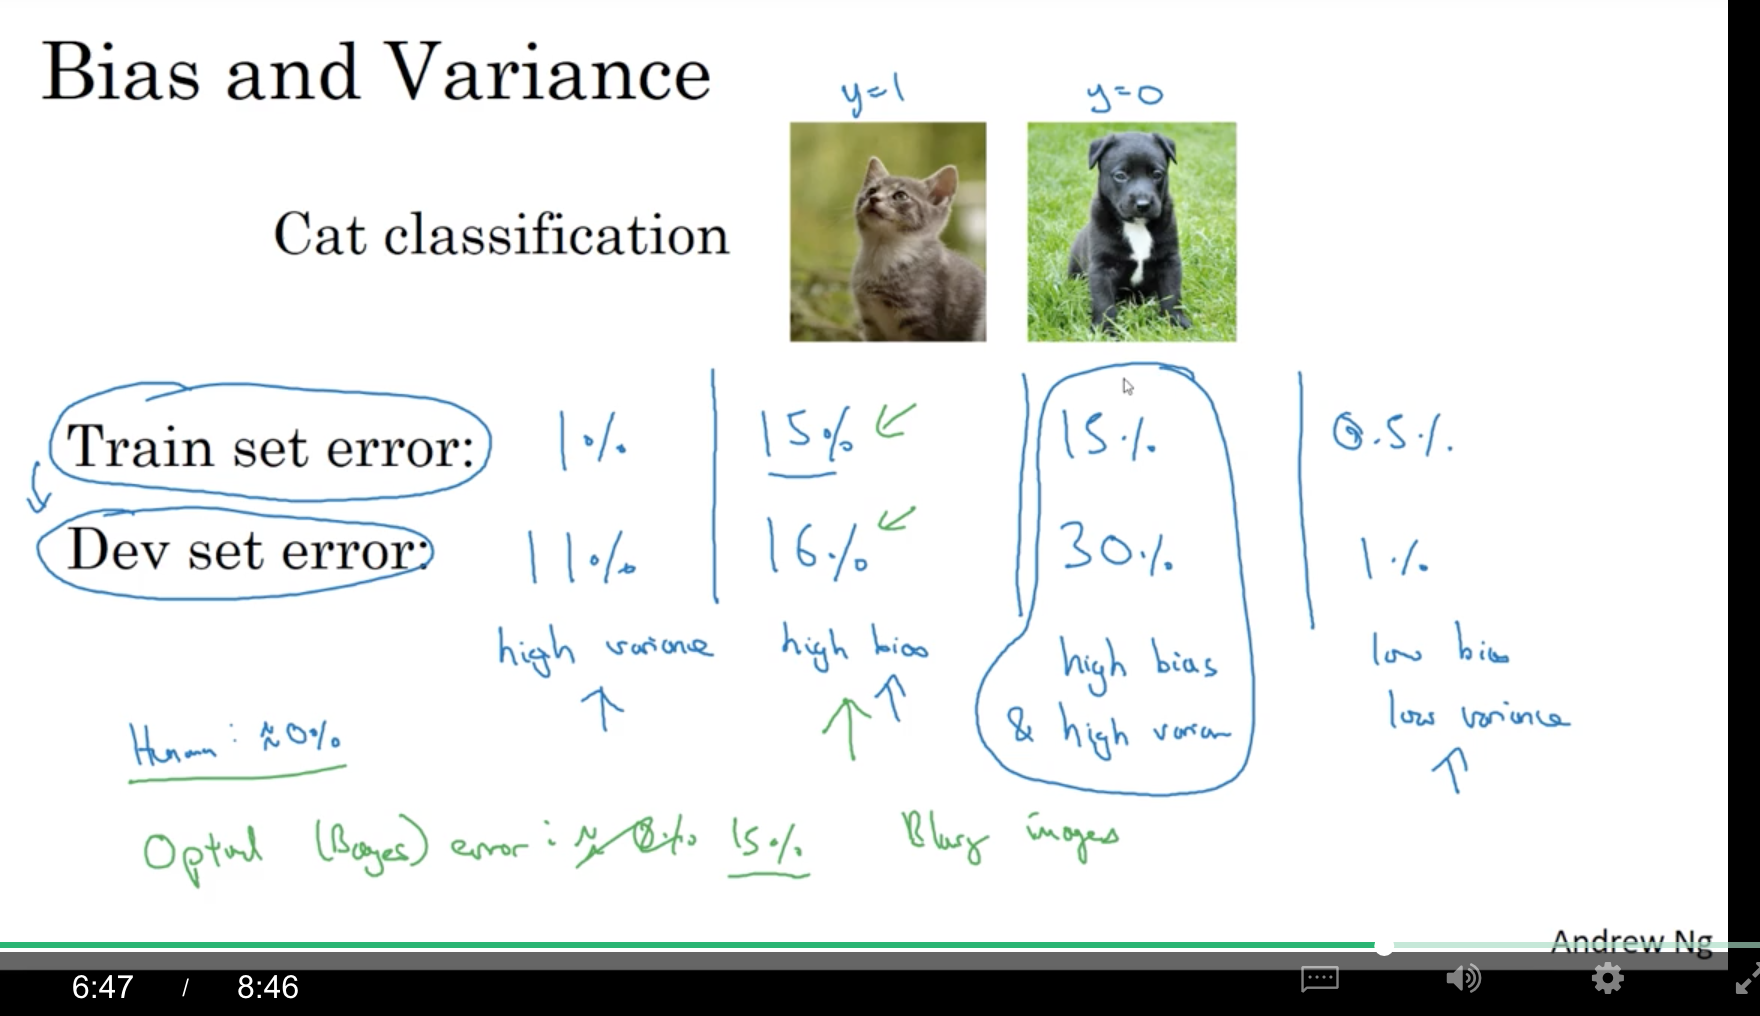 Bias and Variance
y=1
y=0
Cat classification
Train set error: 1% 15% 15% 0.5%
Dev set error: 11% 16% 30% 1%
high variance high bias high bias low bias
& high varian low variance
Human: ≈0%
Optimal (Bayes) error: ≈ 0% 15% Blurry images
Andrew Ng
6:47 / 8:46